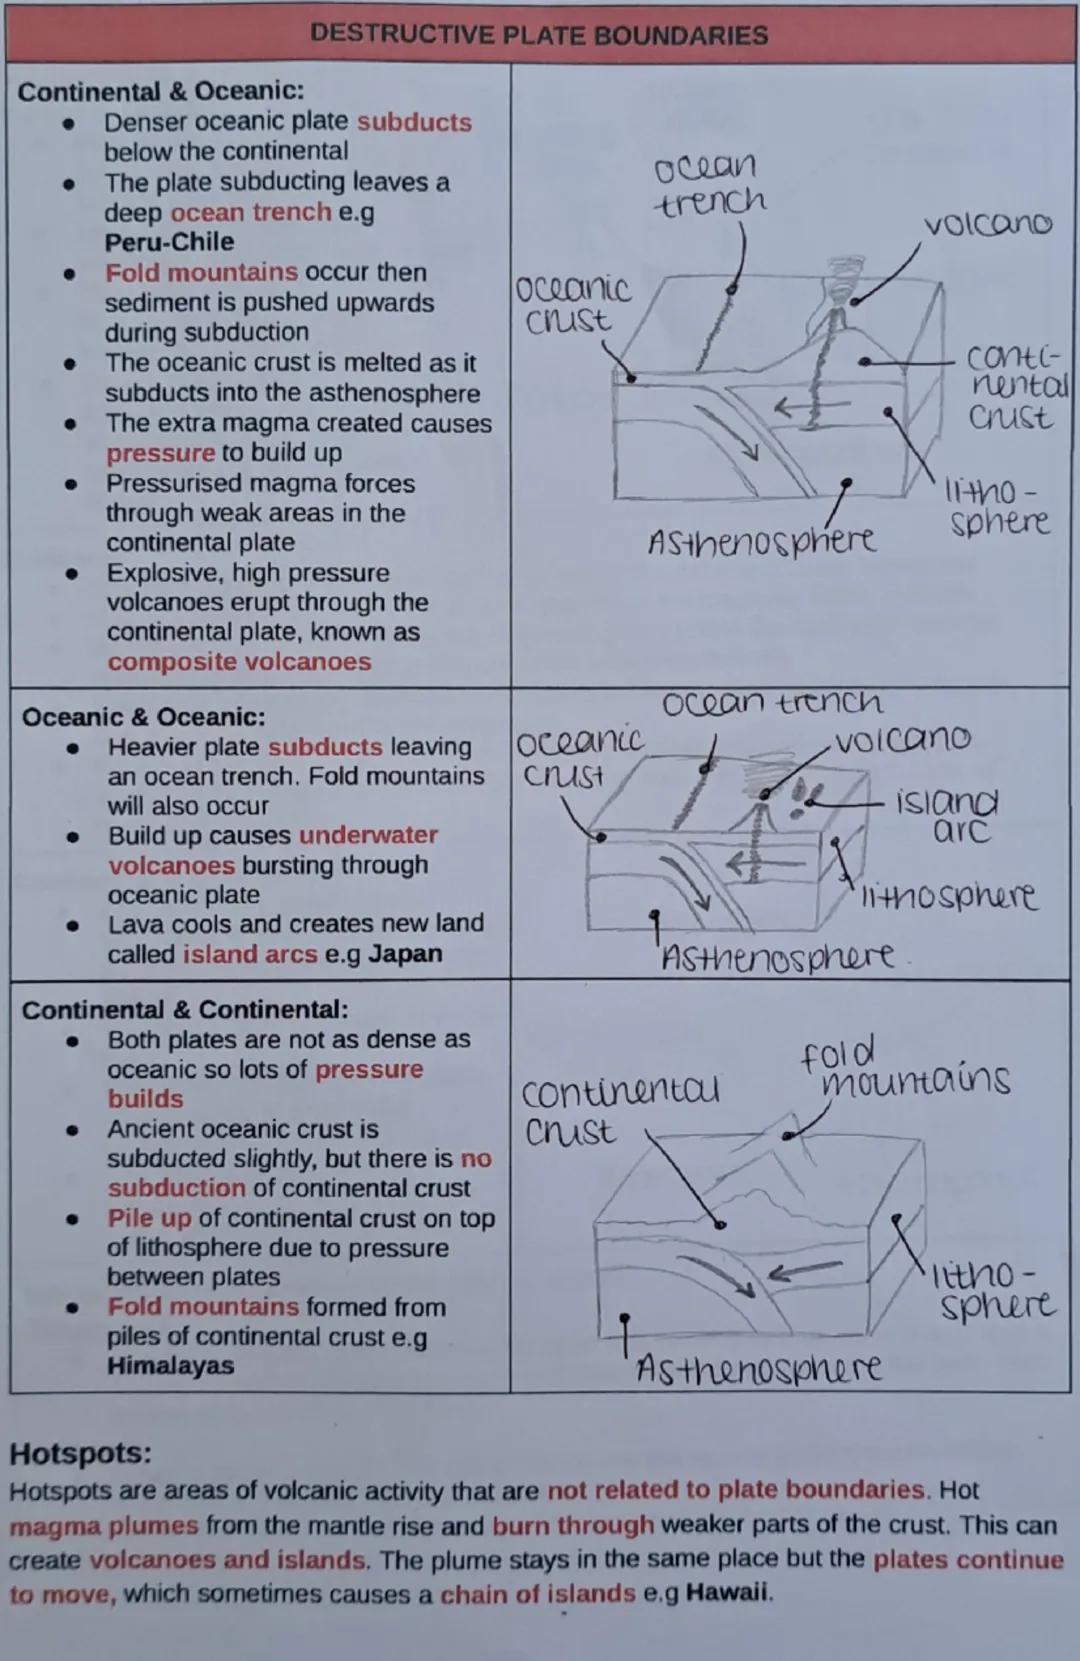 DESTRUCTIVE PLATE BOUNDARIES
Continental & Oceanic:
● Denser oceanic plate subducts
below the continental
● The plate subducting leaves a
deep ocean trench e.g
Peru-Chile
● Fold mountains occur then
sediment is pushed upwards
during subduction
● The oceanic crust is melted as it
subducts into the asthenosphere
● The extra magma created causes
pressure to build up
● Pressurised magma forces
through weak areas in the
continental plate
● Explosive, high pressure
volcanoes erupt through the
continental plate, known as
composite volcanoes
ocean
trench
volcano
oceanic
crust
conti-
nental
crust
litho-
sphere
Asthenosphere
Oceanic & Oceanic:
● Heavier plate subducts leaving
an ocean trench. Fold mountains
will also occur
● Build up causes underwater
volcanoes bursting through
oceanic plate
● Lava cools and creates new land
called island arcs e.g Japan
ocean trench
oceanic
crust
volcano
island
arc
lithosphere
Asthenosphere
Continental & Continental:
● Both plates are not as dense as
oceanic so lots of pressure
builds
● Ancient oceanic crust is
subducted slightly, but there is no
subduction of continental crust
● Pile up of continental crust on top
of lithosphere due to pressure
between plates
● Fold mountains formed from
piles of continental crust e.g
Himalayas
fold
mountains
continental
crust
litho-
sphere
Asthenosphere
Hotspots:
Hotspots are areas of volcanic activity that are not related to plate boundaries. Hot
magma plumes from the mantle rise and burn through weaker parts of the crust. This can
create volcanoes and islands. The plume stays in the same place but the plates continue
to move, which sometimes causes a chain of islands e.g Hawaii.